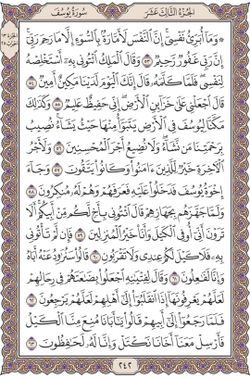 الجُزْءُ الثَّالِثَ عَشَرَ
سُورَةُ يُوسُفَ
۞ وَمَآ أُبَرِّئُ نَفْسِىٓ إِنَّ ٱلنَّفْسَ لَأَمَّارَةٌۢ بِٱلسُّوٓءِ إِلَّا مَا رَحِمَ رَبِّىٓ
إِنَّ رَبِّى غَفُورٌ رَّحِيمٌ ٥٣ وَقَالَ ٱلْمَلِكُ ٱئْتُونِى بِهِۦٓ أَسْتَخْلِصْهُ
لِنَفْسِى فَلَمَّا كَلَّمَهُۥ قَالَ إِنَّكَ ٱلْيَوْمَ لَدَيْنَا مَكِينٌ أَمِينٌ ٥٤
قَالَ ٱجْعَلْنِى عَلَىٰ خَزَآئِنِ ٱلْأَرْضِ إِنِّى حَفِيظٌ عَلِيمٌ ٥٥ وَكَذَٰلِكَ
مَكَّنَّا لِيُوسُفَ فِى ٱلْأَرْضِ يَتَبَوَّأُ مِنْهَا حَيْثُ يَشَآءُ نُصِيبُ
بِرَحْمَتِنَا مَن نَّشَآءُ وَلَا نُضِيعُ أَجْرَ ٱلْمُحْسِنِينَ ٥٦ وَلَأَجْرُ
ٱلْـَٔاخِرَةِ خَيْرٌ لِّلَّذِينَ ءَامَنُوا۟ وَكَانُوا۟ يَتَّقُونَ ٥٧ وَجَآءَ
إِخْوَةُ يُوسُفَ فَدَخَلُوا۟ عَلَيْهِ فَعَرَفَهُمْ وَهُمْ لَهُۥ مُنكِرُونَ ٥٨
وَلَمَّا جَهَّزَهُم بِجَهَازِهِمْ قَالَ ٱئْتُونِى بِأَخٍ لَّكُم مِّنْ أَبِيكُمْ أَلَا
تَرَوْنَ أَنِّىٓ أُوفِى ٱلْكَيْلَ وَأَنَا۠ خَيْرُ ٱلْمُنزِلِينَ ٥٩ فَإِن لَّمْ تَأْتُونِى
بِهِۦ فَلَا كَيْلَ لَكُمْ عِندِى وَلَا تَقْرَبُونِ ٦٠ قَالُوا۟ سَنُرَٰوِدُ عَنْهُ أَبَاهُ
وَإِنَّا لَفَٰعِلُونَ ٦١ وَقَالَ لِفِتْيَٰنِهِ ٱجْعَلُوا۟ بِضَٰعَتَهُمْ فِى رِحَالِهِمْ
لَعَلَّهُمْ يَعْرِفُونَهَآ إِذَا ٱنقَلَبُوٓا۟ إِلَىٰٓ أَهْلِهِمْ لَعَلَّهُمْ يَرْجِعُونَ ٦٢
فَلَمَّا رَجَعُوٓا۟ إِلَىٰٓ أَبِيهِمْ قَالُوا۟ يَٰٓأَبَانَا مُنِعَ مِنَّا ٱلْكَيْلُ
فَأَرْسِلْ مَعَنَآ أَخَانَا نَكْتَلْ وَإِنَّا لَهُۥ لَحَٰفِظُونَ ٦٣
٢٤٢